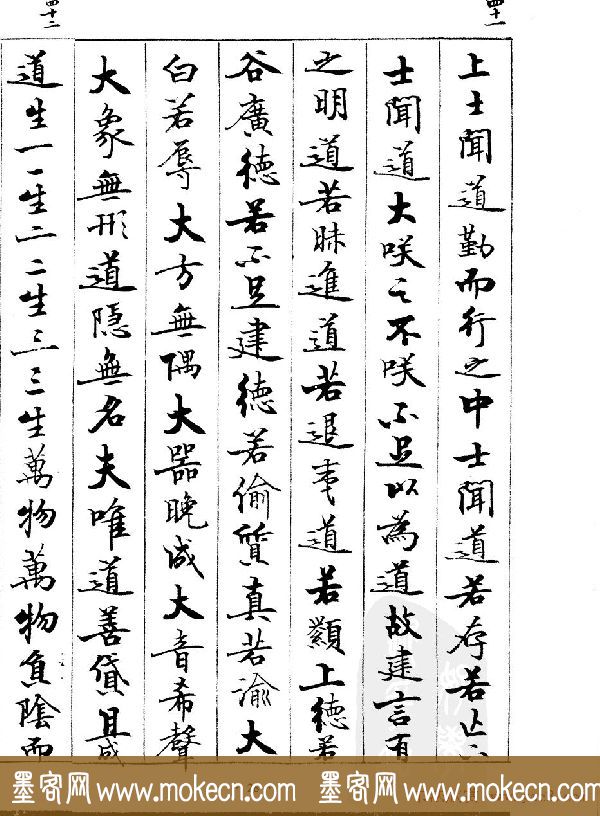 四十一
上士聞道勤而行之中士聞道若存若亡下
士聞道大咲之不咲不足以為道故建言有
之明道若昧進道若退夷道若纇上徳若
谷廣徳若不足建徳若偷質真若渝大
白若辱大方無隅大器晚成大音希聲
大象無形道隱無名夫唯道善貸且成
四十二
道生一一生二二生三三生萬物萬物負陰而
墨客网 www.mokecn.com 墨客网 www.mokecn.com